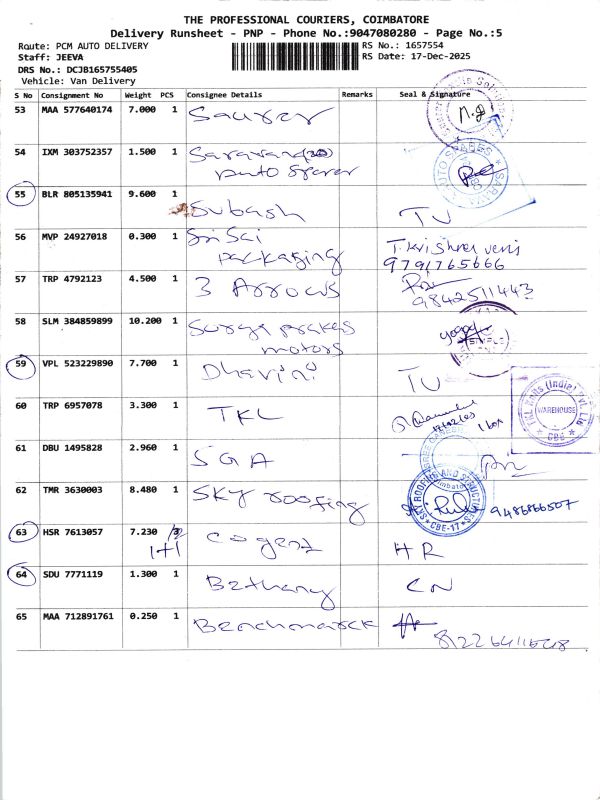 THE PROFESSIONAL COURIERS, COIMBATORE
Delivery Runsheet - PNP - Phone No.:9047080280 - Page No.:5
Route: PCM AUTO DELIVERY
RS No.: 1657554
Staff: JEEVA
RS Date: 17-Dec-2025
DRS No.: DCJB165755405
Vehicle: Van Delivery
S No Consignment No Weight PCS Consignee Details Remarks Seal & Signature
53 MAA 577640174 7.000 1 Saurer
54 IXM 303752357 1.500 1 Saravana
auto sparer
AUTO SPARES
55 BLR 805135941 9.600 1 Subash TV
56 MVP 24927018 0.300 1 Sri Sai
packaging
9791765666
57 TRP 4792123 4.500 1 3 Arrows
9842511443
58 SLM 384859899 10.200 1 Surya prakas
motors
59 VPL 523229890 7.700 1 Dharini TV
60 TRP 6957078 3.300 1 TKL 1 box
WAREHOUSE
CBE
61 DBU 1495828 2.960 1 SGA
62 TMR 3630003 8.480 1 SKY roofing 9486866507
SKY ROOFING AND STRUCTURES
CBE-17
63 HSR 7613057 7.230 1+1 cogent HR
64 SDU 7771119 1.300 1 Bethany CN
65 MAA 712891761 0.250 1 Benchmarck